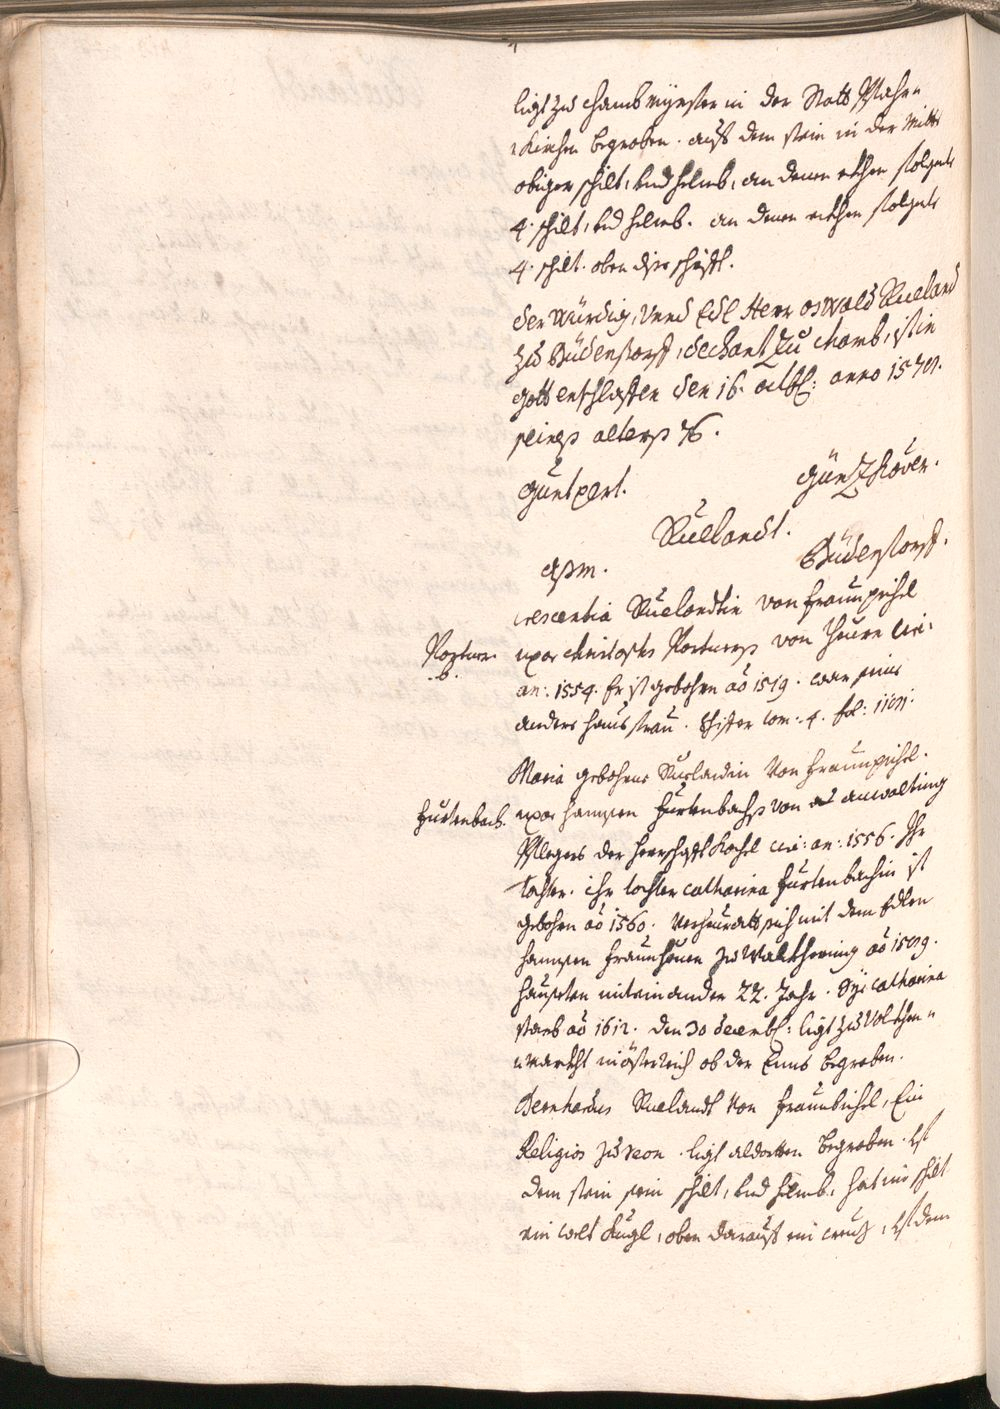 ligt zu Chambmynster in der Statt Pfahr=
=kirchen begraben. auf dem stain in der Mitte
obiger schilt, und helmb, an denen ekhen folgente
4. schilt, und helmb. an denen ekhen folgente
4. schilt. oben dise schrifft.
der würdig, Unnd Edl Herr Oswald Rueland
zu Düdenstorff, dechant zu Chamb, ist in
gott entschlaffen den 16. octb: anno 157
seines alters 76.
Guntpert.
Güntzkover.
Ruelandt.
Asm.
Düdenstorff.
Crescentia Ruelandtin von Fraunpichl
Portner
uxor christophs Portners von Theurn circ:
an: 1554. Er ist gebohren aō 1519. war seine
anders hausfrau. Lhifter tom: 4. fol:
Maria gebohrne Ruelandin von Fraunpichl.
Furtenbach.
uxor hannsen Furtenbachs von anwalting
Pflegers der herrschafft Kochl circ: an: 1556. Ihr
tochter. ihr tochter Catharina Furtenbachin ist
gebohrn aō 1560. verheurath sich mit dem Edlen
hannsen Fraunhauer zu Walkhering aō
hausten miteinander 22. Jahr. Sye Catharina
starb aō 1612. den 30 decemb: ligt zu Volkhen=
=marckht in österreich ob der Enns begraben.
Bernhardus Ruelandt von Fraunbichl, Ein
Religios zu Seon. ligt aldorten begraben. uf
dem stain sein schilt, und helmb, hat im schilt
ein welt kugl, oben darauf ein creuz, uf dem